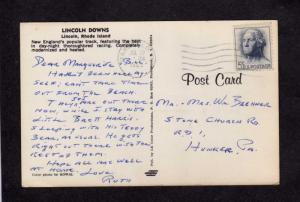 LINCOLN DOWNS
Lincoln, Rhode Island
New England's popular track, featuring the best
in day-night thoroughbred racing. Completely
modernized and heated.
DEAR MARGUERITE, BILL
HAVEN'T BEEN HERE MY
SELF, CAN'T TAKE TIME
OUT FROM THE BEACH.
THEY ARE OUT THERE
NOW, WHILE I STAY WITH
LITTLE BETH HARRIS.
SLEEPING WITH HIS TEDDY
BEAR, AS USUAL. HE GETS
RIGHT OUT THERE WITH THE
REST OF THEM.
HOPE ALL ARE WELL
AT HOME. LOVE
RUTH
Color photo by
Post Card
5¢
MR. MRS. WM. BRENNER
STONE CHURCH RD.
RD 1,
HUNKER, PA.